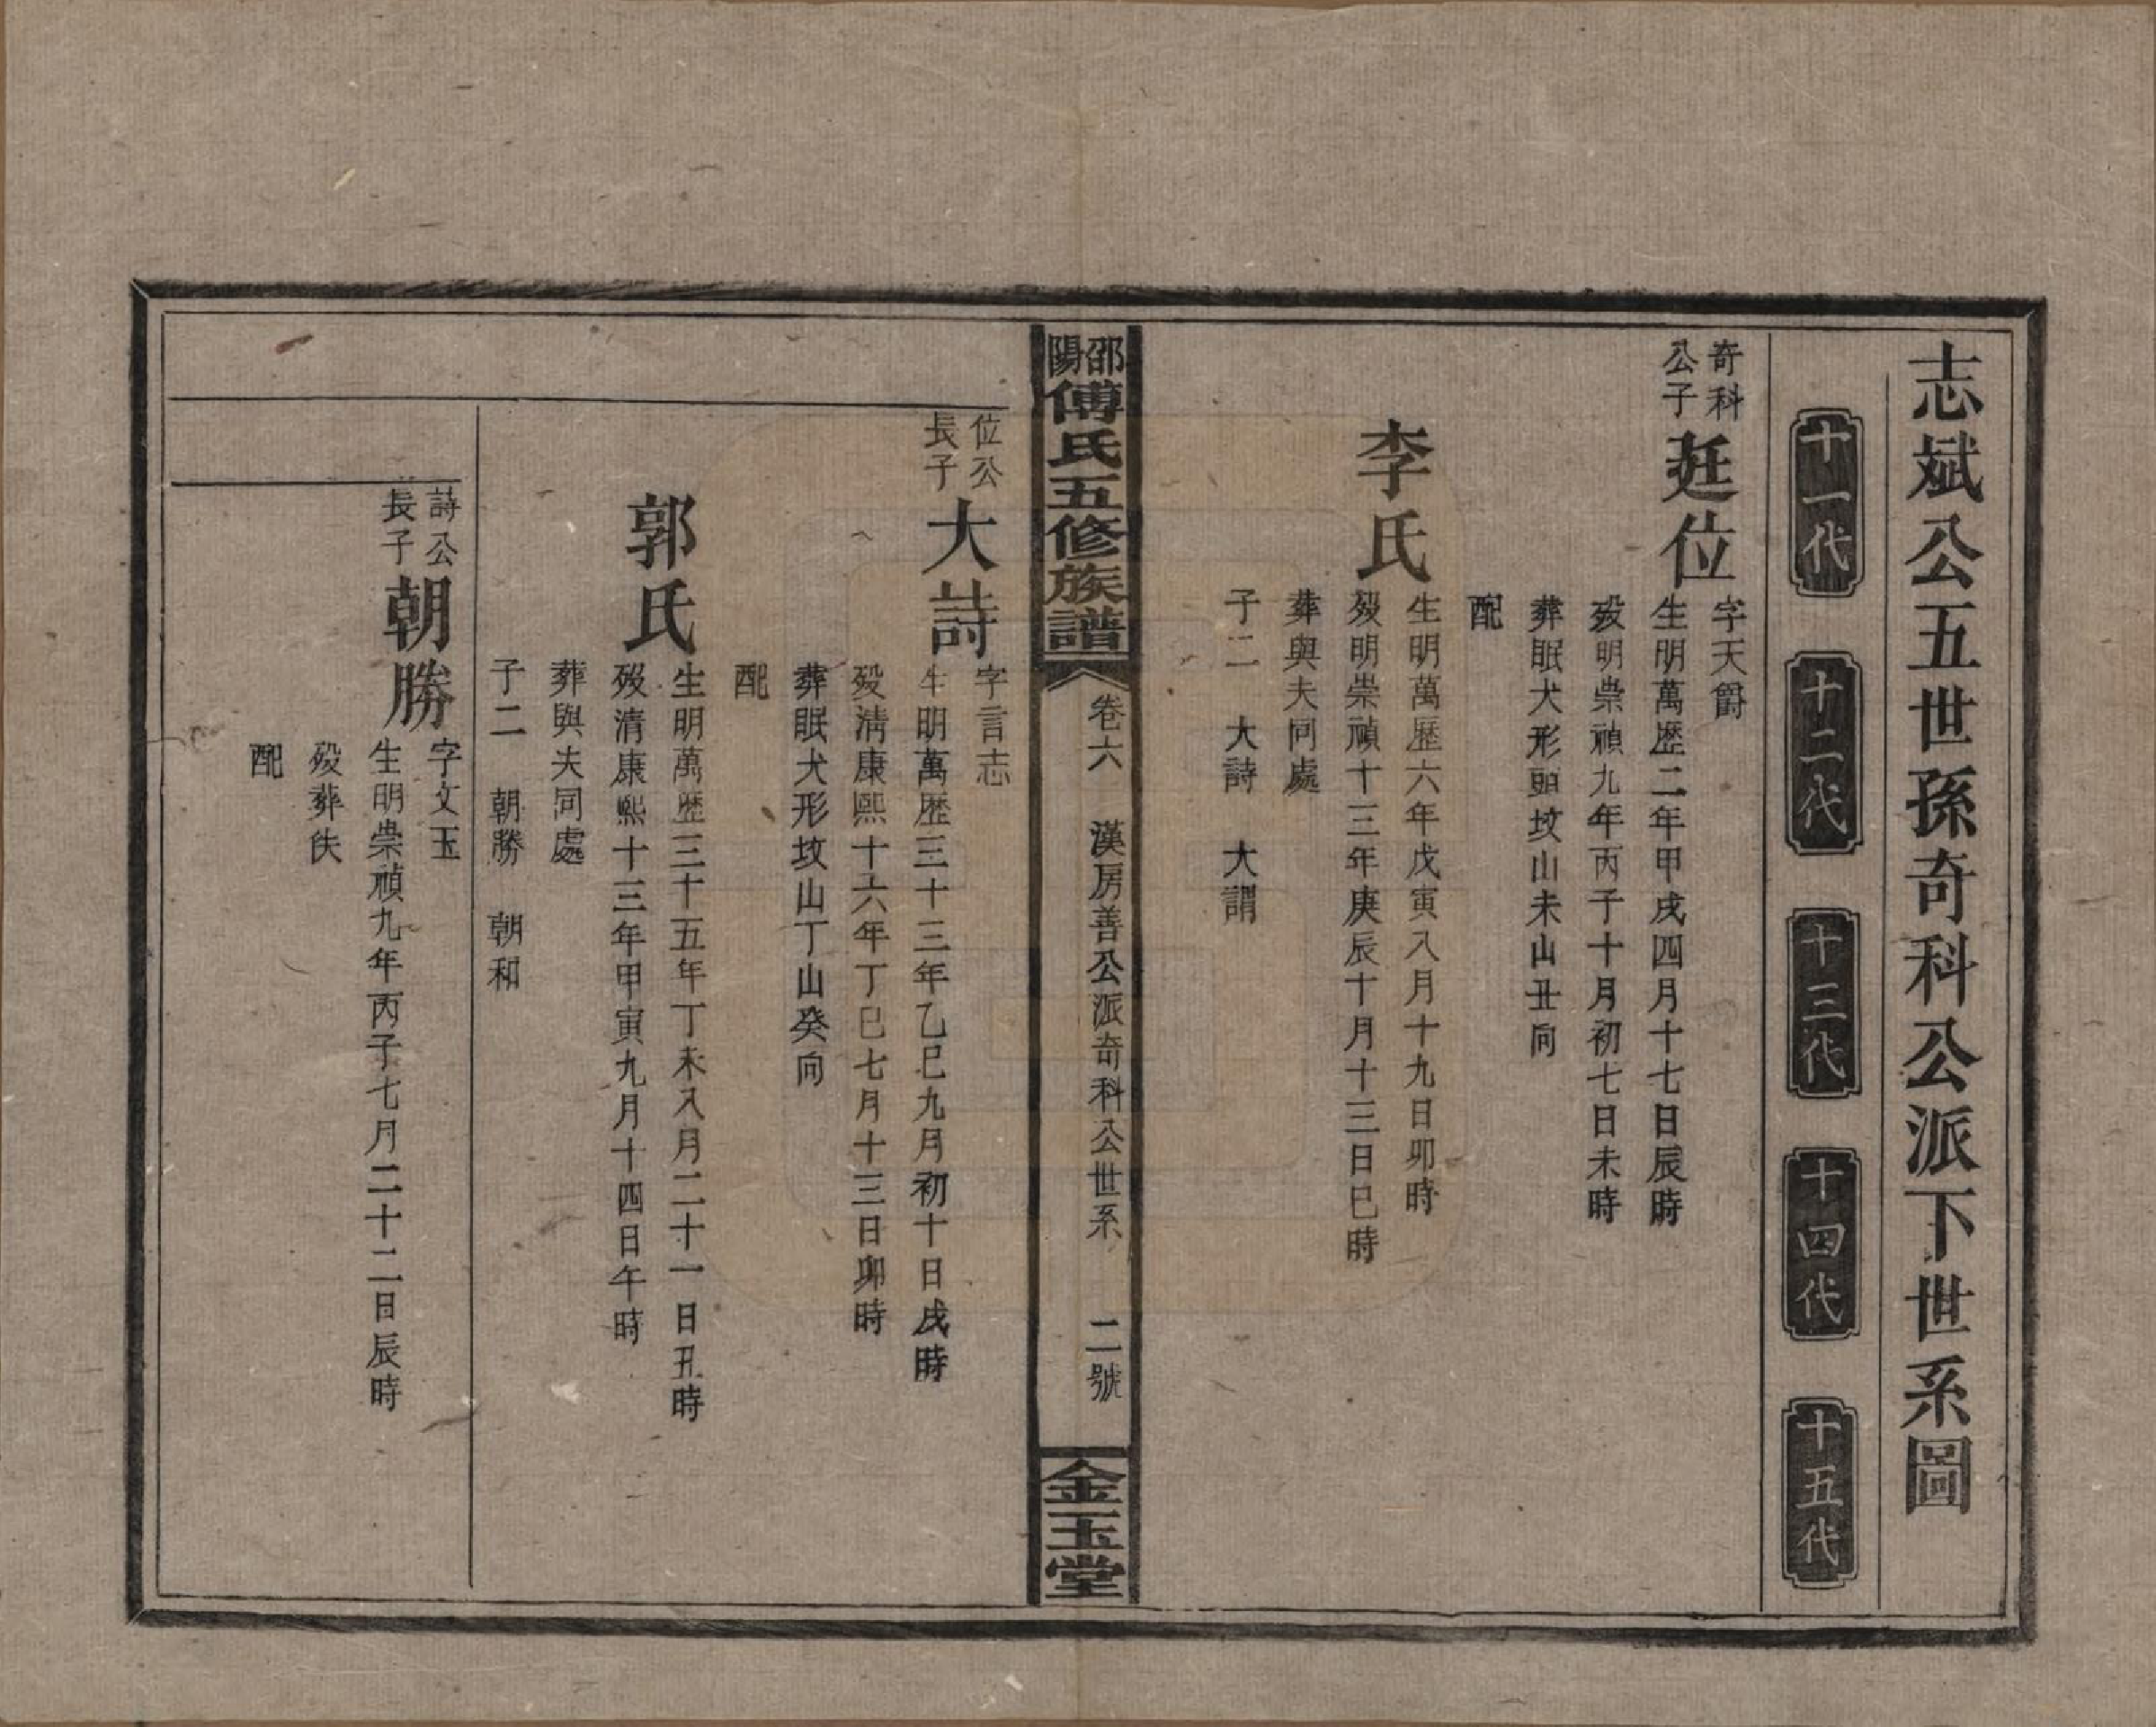 志斌公五世孫奇科公派下世系圖
十一代
十二代
十三代
十四代
十五代
奇科
公子
廷位
字天爵
生明萬歷二年甲戌四月十七日辰時
歿明崇禎九年丙子十月初七日未時
葬眠犬形頭坟山未山丑向
配
李氏
生明萬歷六年戊寅八月十九日卯時
歿明崇禎十三年庚辰十月十三日巳時
葬與夫同處
子二 大詩 大謂
邵陽傅氏五修族譜
卷六 漢房善公派奇科公世系 二號
金玉堂
位公
長子
大詩
字言志
生明萬歷三十三年乙巳九月初十日戌時
歿清康熙十六年丁巳七月十三日卯時
葬眠犬形坟山丁山癸向
配
郭氏
生明萬歷三十五年丁未八月二十一日丑時
歿清康熙十三年甲寅九月十四日午時
葬與夫同處
子二 朝勝 朝和
詩公
長子
朝勝
字文玉
生明崇禎九年丙子七月二十二日辰時
歿葬佚
配